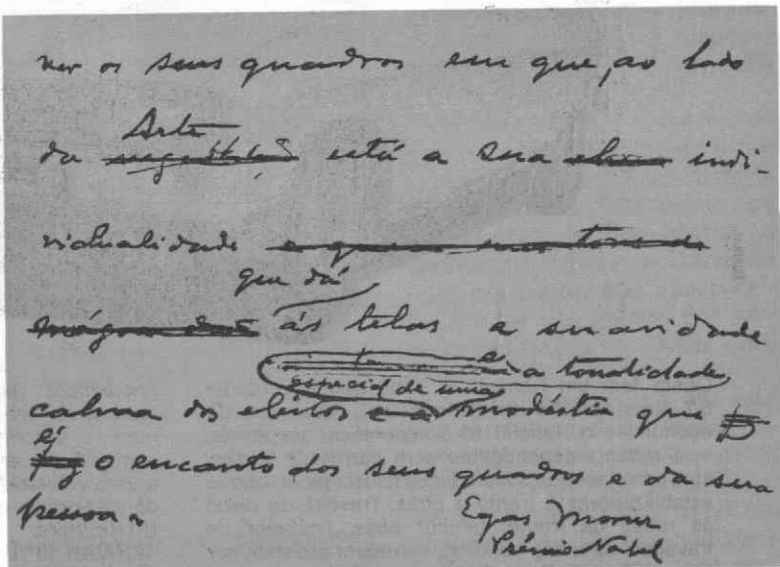 ver os seus quadros em que, ao lado
Arte
da sugestão está a sua indi-
vidualidade e que uns tons de
que dá
mágoa dá ás telas a suavidade
e a tonalidade
especial de uma
calma dos eleitos e a modéstia que
é
o encanto dos seus quadros e da sua
pessoa"
Egas Moniz
Prémio Nobel